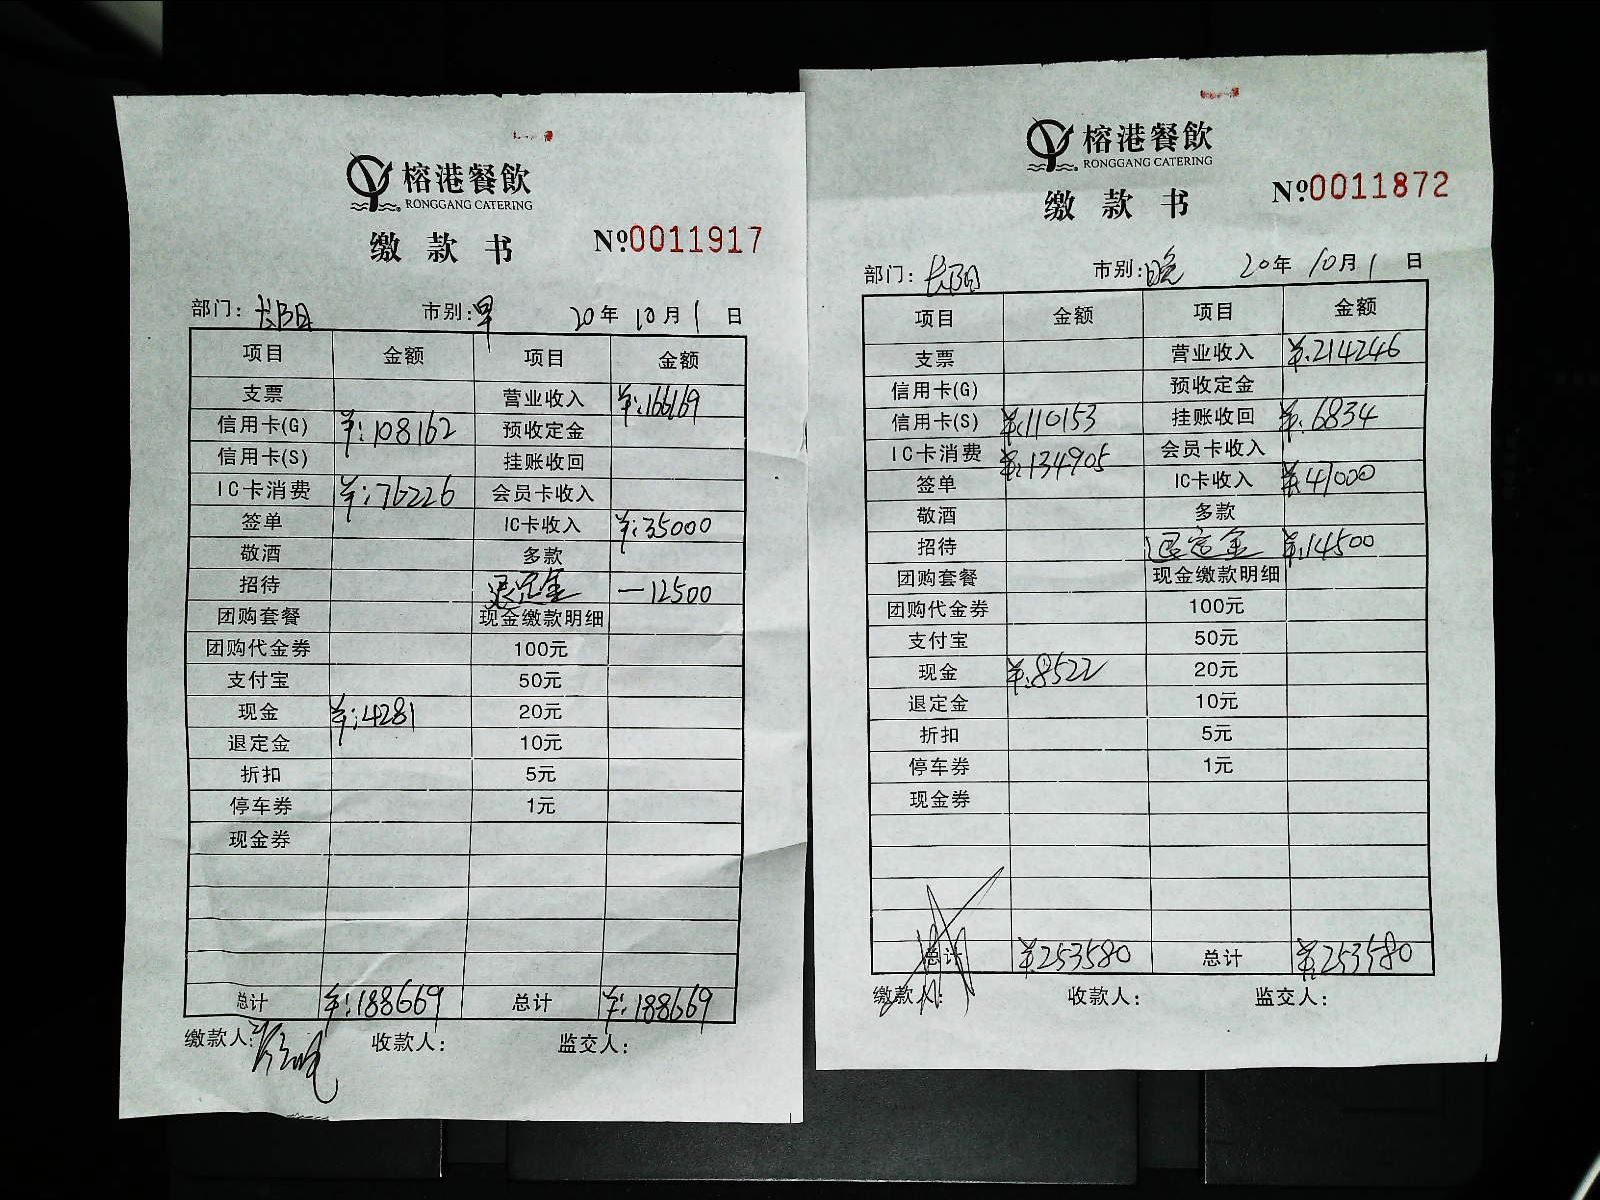 榕港餐飲
RONGGANG CATERING
缴款书
№0011917
部门：长阳 市别：早 20年10月1日
项目 金额 项目 金额
支票 营业收入 ¥:166169
信用卡(G) ¥:108162 预收定金
信用卡(S) 挂账收回
IC卡消费 ¥:76226 会员卡收入
签单 IC卡收入 ¥:35000
敬酒 多款
招待 退定金 —12500
团购套餐 现金缴款明细
团购代金券 100元
支付宝 50元
现金 ¥:4281 20元
退定金 10元
折扣 5元
停车券 1元
现金券
总计 ¥:188669 总计 ¥:188669
缴款人: 收款人: 监交人:
榕港餐飲
RONGGANG CATERING
缴款书
№0011872
部门：长阳 市别：晚 20年10月1日
项目 金额 项目 金额
支票 营业收入 ¥:214246
信用卡(G) 预收定金
信用卡(S) ¥:110153 挂账收回 ¥:6834
IC卡消费 ¥:134905 会员卡收入
签单 IC卡收入 ¥:41000
敬酒 多款
招待 退定金 ¥:14500
团购套餐 现金缴款明细
团购代金券 100元
支付宝 50元
现金 ¥:8522 20元
退定金 10元
折扣 5元
停车券 1元
现金券
总计 ¥:253580 总计 ¥:253580
缴款人: 收款人: 监交人: